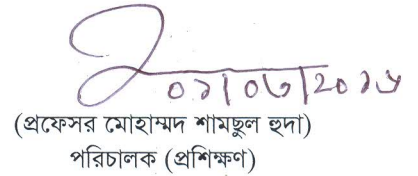 ০১/০৬/২০১৬
(প্রফেসর মোহাম্মদ শামছুল হুদা)
পরিচালক (প্রশিক্ষণ)